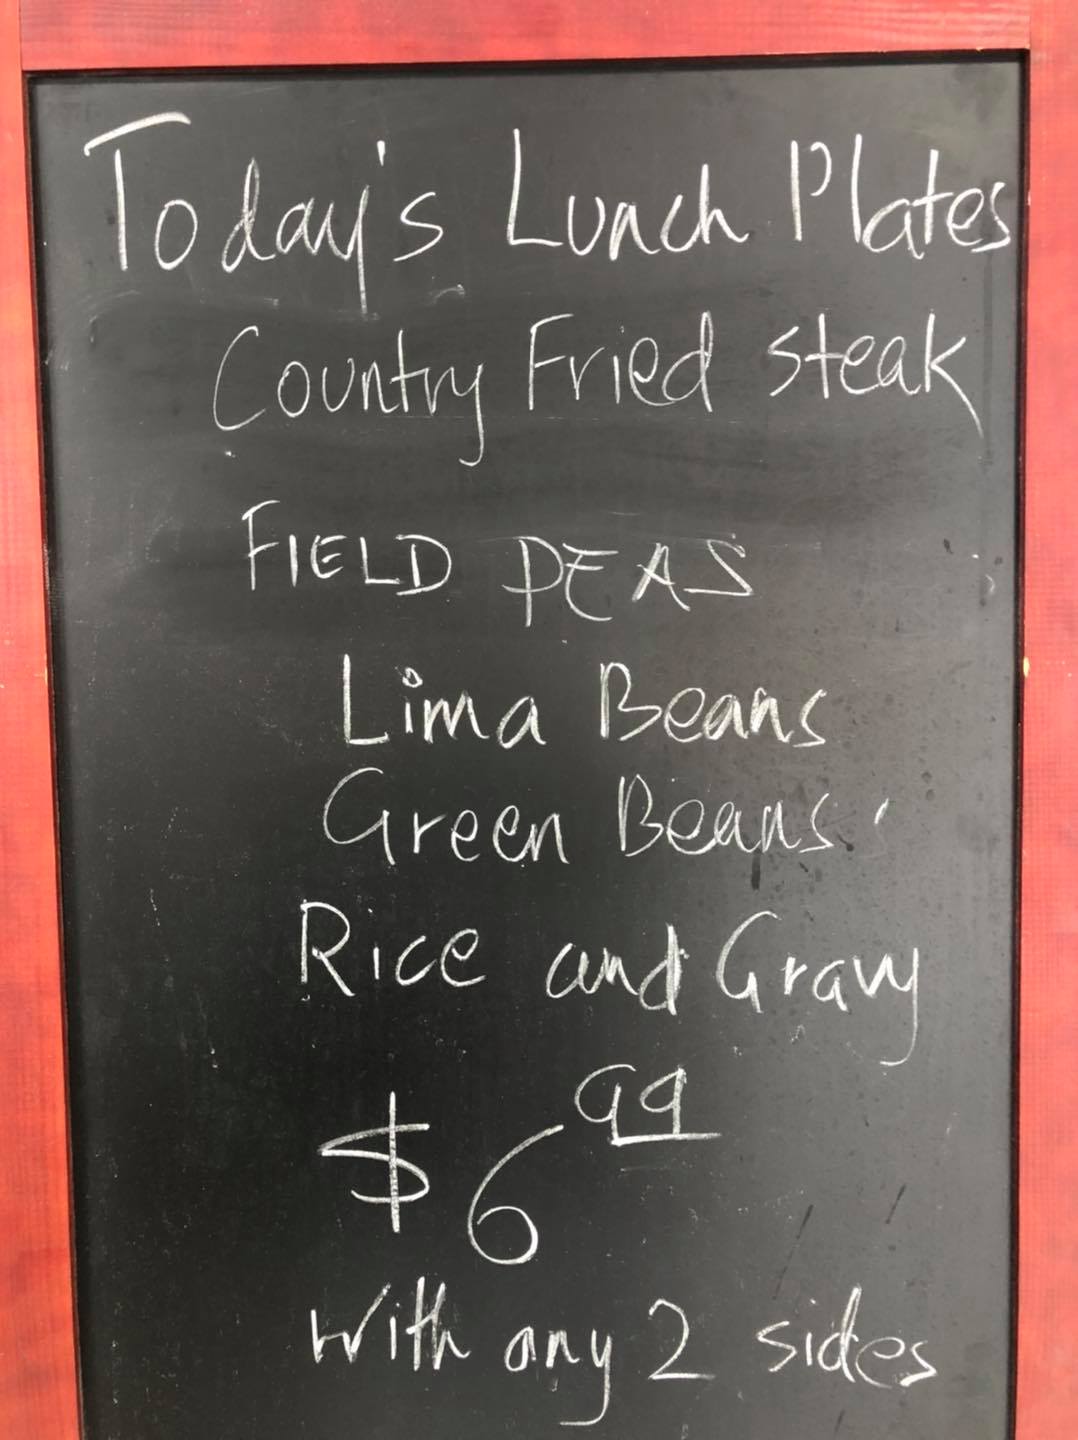 Today's Lunch Plates
Country Fried Steak
FIELD PEAS
Lima Beans
Green Beans
Rice and Gravy
$6 99
with any 2 sides